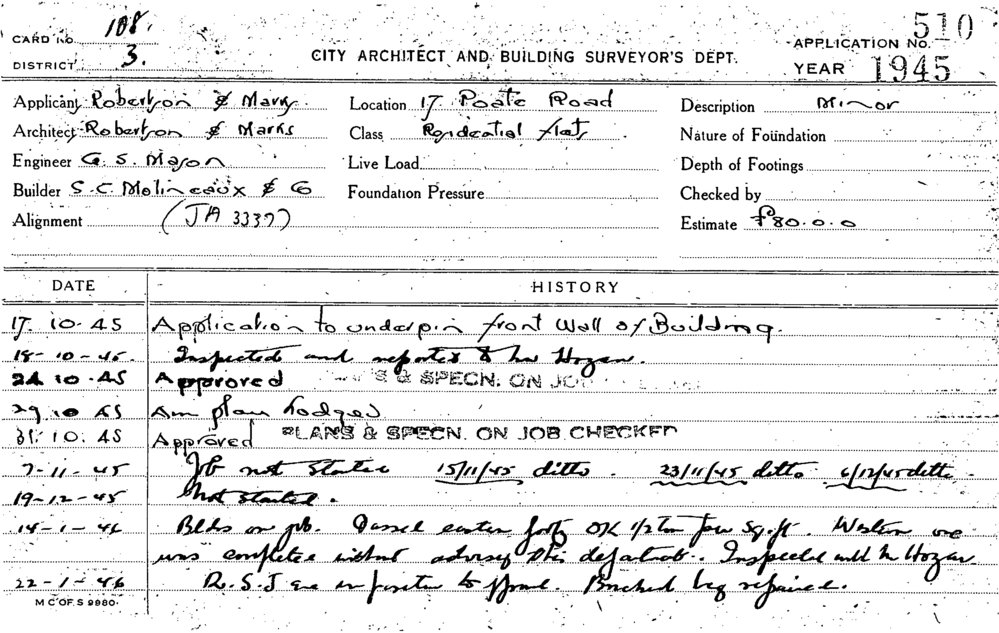 CARD No. 108.
DISTRICT 3.
CITY ARCHITECT AND BUILDING SURVEYOR'S DEPT.
APPLICATION No. 510
YEAR 1945
Applicant Robertson & Marks
Architect Robertson & Marks
Engineer G. S. Mason
Builder S.C. Molineaux & Co
Alignment (JA 3337)
Location 17 Poate Road
Class Residential flats
Live Load
Foundation Pressure
Description Minor
Nature of Foundation
Depth of Footings
Checked by
Estimate £80.0.0
DATE HISTORY
17.10.45 Application to underpin front Wall of Building.
18-10-45. Inspected and reported to Mr Hogan.
24.10.45 Approved & SPECN. ON JOB
29.10.45 Am plan lodged
31.10.45 Approved PLANS & SPECN. ON JOB CHECKED
7-11-45 Job not started 15/11/45 ditto. 23/11/45 ditto. 6/12/45 ditto.
19-12-45 Not started.
14-1-46 Bldrs on job. Passed eastern OK 1/2 ton per Sq. ft. Western one
was completed without advising this department. Inspected with Mr Hogan.
22-1-46 R.S.J are in position to . Bricked being repaired.
M C OF S 9980